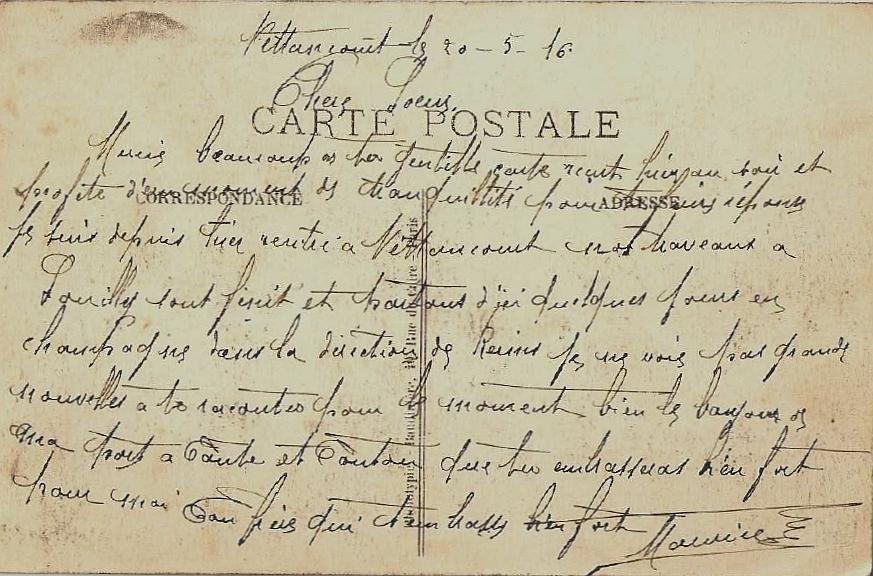 Nettancourt le 20-5-16
Chere Soeur
CARTE POSTALE
Merci beaucoup de ta gentille carte recut hier au soir et
CORRESPONDANCE
ADRESSE
profite d'un moment de tranquillité pour te faire réponse
je suis depuis hier rentré a Nettancourt nos traveaux a
Pouilly sont finit et partons d'ici quelques jours en
champagne dans la direction de Reims je ne vois pas grande
nouvelles a te raconter pour le moment bien le bonjour de
ma part a Tante et Tonton que tu embrasseras bien fort
pour moi Ton frère qui t'embrasse bien fort
Maurice
Phototypie Baudinière, Rue du Caire Paris